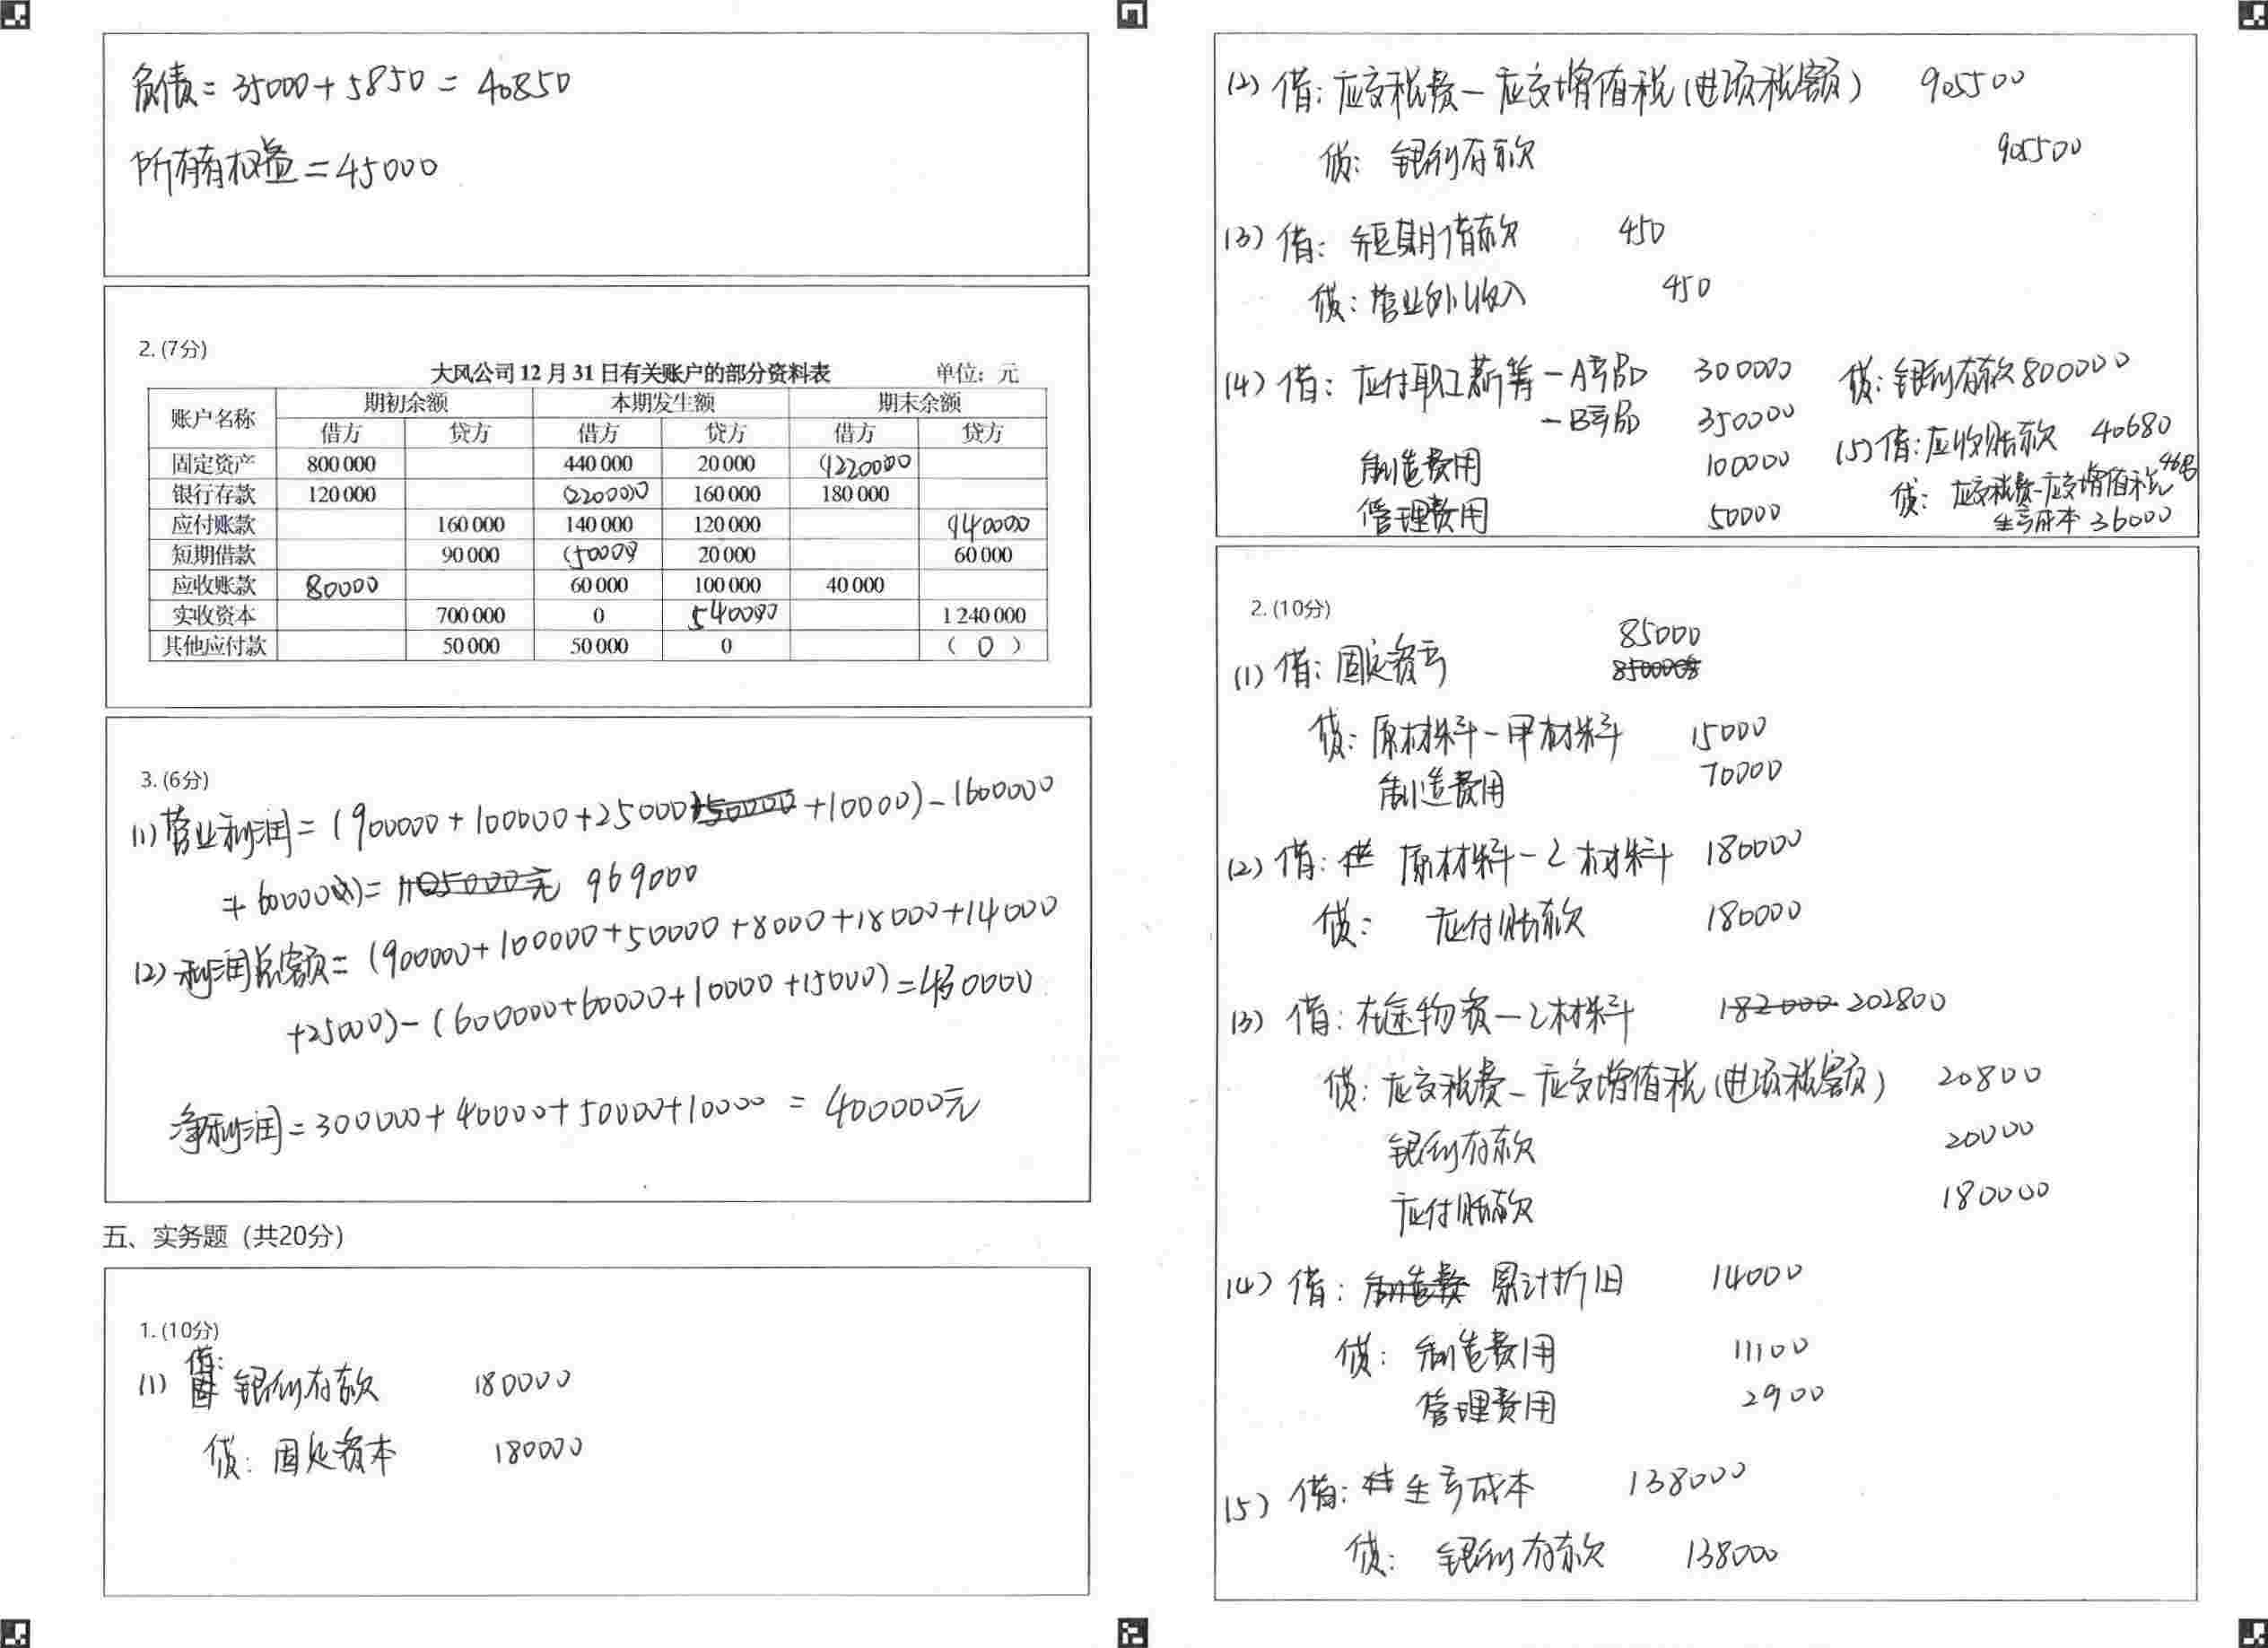 负债 = 35000 + 5850 = 40850
所有者权益 = 45000
2. (7分)
大风公司12月31日有关账户的部分资料表 单位：元
账户名称 期初余额 本期发生额 期末余额
借方 贷方 借方 贷方 借方 贷方
固定资产 800 000 440 000 20 000 (1220000
银行存款 120 000 (220000) 160 000 180 000
应付账款 160 000 140 000 120 000 (140000
短期借款 90 000 (50000) 20 000 60 000
应收账款 80000 60 000 100 000 40 000
实收资本 700 000 0 540000 1 240 000
其他应付款 50 000 50 000 0 ( 0 )
3. (6分)
(1) 营业利润 = (900000 + 100000 + 25000 + 10000) - (600000
+ 60000) = 969000
(2) 利润总额 = (900000 + 100000 + 50000 + 8000 + 18000 + 14000
+25000) - (600000 + 60000 + 10000 + 15000) = 430000
净利润 = 300000 + 40000 + 50000 + 10000 = 400000元
五、实务题（共20分）
1. (10分)
(1) 借: 银行存款 180000
贷: 固定资本 180000
(2) 借: 应交税费-应交增值税(进项税额) 905500
贷: 银行存款 905500
(3) 借: 短期借款 450
贷: 营业外收入 450
(4) 借: 应付职工薪筹-A产品 300000 贷: 银行存款 800000
-B产品 350000
制造费用 100000
管理费用 50000
(5) 借: 应收账款 40680
贷: 应交税费-应交增值税 4680
生产成本 36000
2. (10分)
(1) 借: 固定资产 85000
贷: 原材料-甲材料 15000
制造费用 70000
(2) 借: 原材料-乙材料 180000
贷: 应付账款 180000
(3) 借: 在途物资-乙材料 182000 202800
贷: 应交税费-应交增值税(进项税额) 20800
银行存款 20000
应付账款 180000
(4) 借: 累计折旧 14000
贷: 制造费用 11100
管理费用 2900
(5) 借: 生产成本 138000
贷: 银行存款 138000